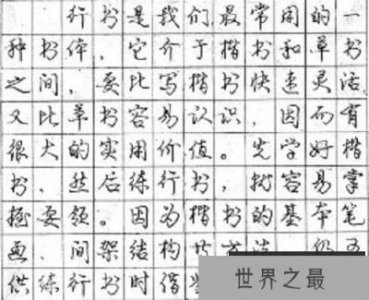 行书是我们最常用的一
种书体，它介于楷书和草书
之间，要比写楷书快速灵活
又比草书容易认识，因而有
很大的实用价值。先学好楷
书，然后练行书，就容易掌
握要领。因为楷书的基本笔
画、间架结构
供练行书时借
世界之最